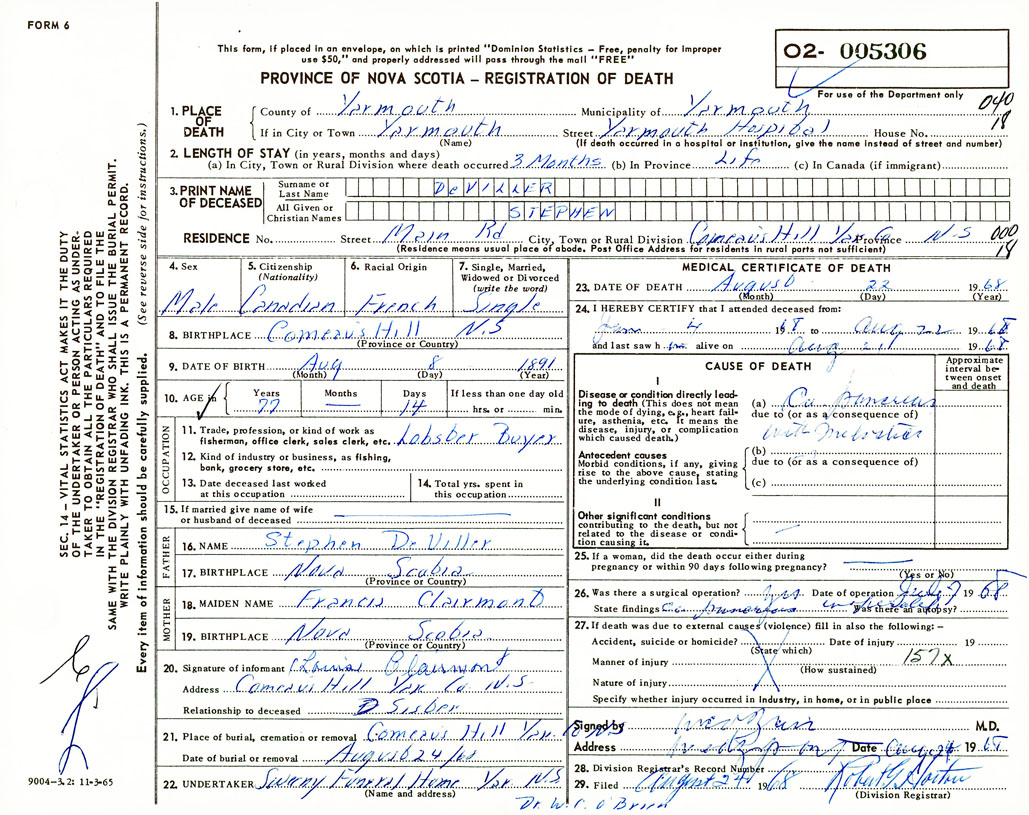 FORM 6
This form, if placed in an envelope, on which is printed "Dominion Statistics – Free, penalty for improper
use $50," and properly addressed will pass through the mail "FREE"
PROVINCE OF NOVA SCOTIA – REGISTRATION OF DEATH
O2- 005306
For use of the Department only
040
18
1. PLACE OF DEATH
County of Yarmouth Municipality of Yarmouth
If in City or Town Yarmouth Street Yarmouth Hospital House No.
(Name) (If death occurred in a hospital or institution, give the name instead of street and number)
2. LENGTH OF STAY (in years, months and days)
(a) In City, Town or Rural Division where death occurred 3 Months (b) In Province Life (c) In Canada (if immigrant)
3. PRINT NAME OF DECEASED
Surname or Last Name DeVILLER
All Given or Christian Names STEPHEN
RESIDENCE No. Street Main Rd City, Town or Rural Division Comeau's Hill Yar. Co Province N.S
000
18
(Residence means usual place of abode. Post Office Address for residents in rural parts not sufficient)
4. Sex
Male
5. Citizenship (Nationality)
Canadian
6. Racial Origin
French
7. Single, Married, Widowed or Divorced (write the word)
Single
8. BIRTHPLACE Comeau's Hill N.S
(Province or Country)
9. DATE OF BIRTH Aug 8 1891
(Month) (Day) (Year)
10. AGE in Years 77 Months — Days 14 If less than one day old
hrs. or min.
OCCUPATION
11. Trade, profession, or kind of work as fisherman, office clerk, sales clerk, etc. Lobster Buyer
12. Kind of industry or business, as fishing, bank, grocery store, etc.
13. Date deceased last worked at this occupation
14. Total yrs. spent in this occupation
15. If married give name of wife or husband of deceased
FATHER
16. NAME Stephen DeViller
17. BIRTHPLACE Nova Scotia
(Province or Country)
MOTHER
18. MAIDEN NAME Francis Clairmont
19. BIRTHPLACE Nova Scotia
(Province or Country)
20. Signature of informant Louise Clairmont
Address Comeau's Hill Yar. Co. N.S.
Relationship to deceased Sister
21. Place of burial, cremation or removal Comeau's Hill Yar. Co NS
Date of burial or removal August 24/68
22. UNDERTAKER Sweeny Funeral Home Yar. N.S
(Name and address)
Dr. W. C. O'Brien
MEDICAL CERTIFICATE OF DEATH
23. DATE OF DEATH August 22 1968
(Month) (Day) (Year)
24. I HEREBY CERTIFY that I attended deceased from:
4 1968 to Aug 22 1968
and last saw him alive on Aug 21 1968
CAUSE OF DEATH
Approximate interval between onset and death
I
Disease or condition directly leading to death (This does not mean the mode of dying, e.g., heart failure, asthenia, etc. It means the disease, injury, or complication which caused death.)
(a) Ca pancreas
due to (or as a consequence of)
with metastases
Antecedent causes
Morbid conditions, if any, giving rise to the above cause, stating the underlying condition last.
(b)
due to (or as a consequence of)
(c)
II
Other significant conditions contributing to the death, but not related to the disease or condition causing it.
25. If a woman, did the death occur either during pregnancy or within 90 days following pregnancy?
(Yes or No)
26. Was there a surgical operation? yes Date of operation July 9 1968
State findings Ca pancreas inoperable Was there an autopsy?
27. If death was due to external causes (violence) fill in also the following: –
Accident, suicide or homicide? Date of injury 19
(State which)
Manner of injury 157x
(How sustained)
Nature of injury
Specify whether injury occurred in industry, in home, or in public place
Signed by M.D.
Address Date Aug 1968
28. Division Registrar's Record Number
29. Filed August 24 1968 Robert G. Horton
(Division Registrar)
SEC. 14 – VITAL STATISTICS ACT MAKES IT THE DUTY
OF THE UNDERTAKER OR PERSON ACTING AS UNDER-
TAKER TO OBTAIN ALL THE PARTICULARS REQUIRED
IN THE "REGISTRATION OF DEATH" AND TO FILE THE
SAME WITH THE DIVISION REGISTRAR WHO SHALL ISSUE THE BURIAL PERMIT.
WRITE PLAINLY WITH UNFADING INK. THIS IS A PERMANENT RECORD.
Every item of information should be carefully supplied. (See reverse side for instructions.)
9004-3.2: 11-3-65